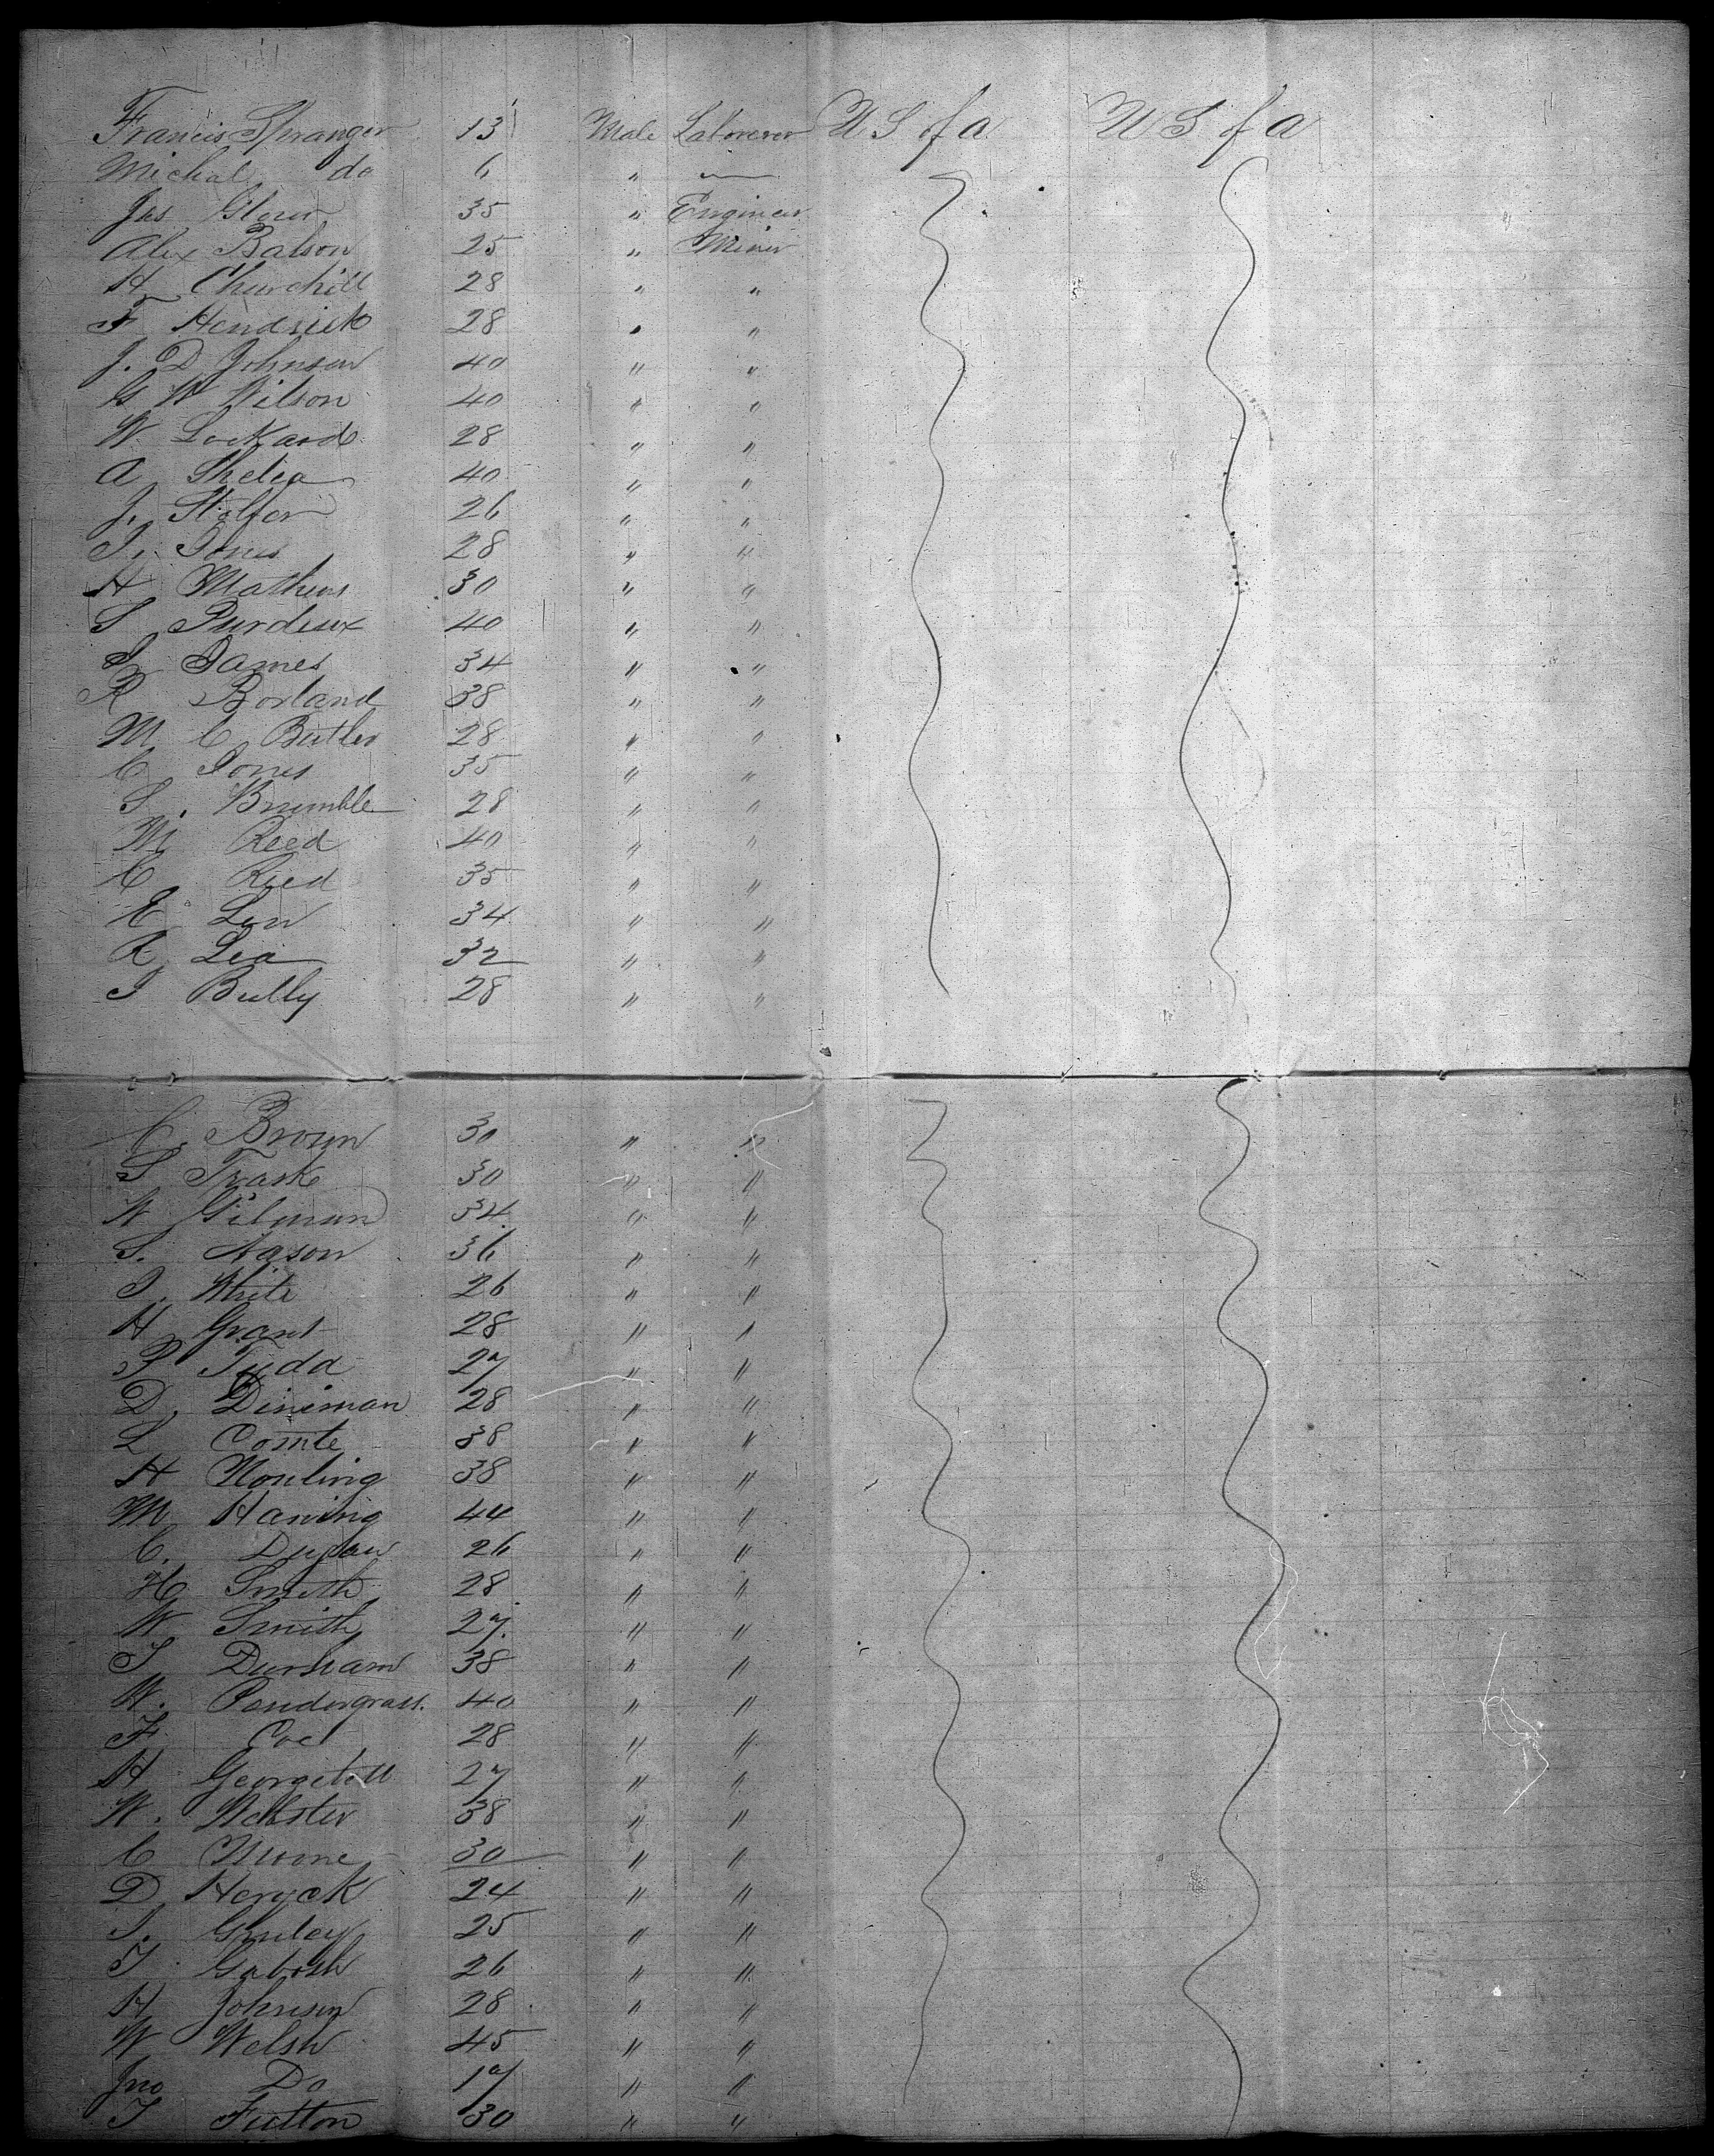 Francis Spranger 13 Male Laborerer U S of a U S of a
Michal do 6 "
Jas Glour 35 " Engineer
Alex Balson 25 " Miner
H Churchill 28 " "
F Hendrick 28 " "
J. D Johnson 40 " "
G W Wilson 40 " "
W. Lockard 28 " "
A Shelea 40 " "
J. Stolfer 26 " "
J. Jones 28 " "
H Mathews 30 " "
S Purdeux 40 " "
J James 34 " "
R Borland 38 " "
M C Butler 28 " "
C Jones 35 " "
S. Brumble 28 " "
M Reed 40 " "
C Reed 35 " "
E Low 34 " "
R Lea 32 " "
J Bully 28 " "
C. Broun 30 " "
S Trask 30 " "
N Gilman 34 " "
S. Nason 36 " "
J. White 26 " "
H Grant 28 " "
P Tudd 27 " "
D. Diniman 28 " "
L Comte 38 " "
H Nouling 38 " "
M Haning 44 " "
C. Dugan 26 " "
H Smith 28 " "
W Smith 27. " "
J Durham 38 " "
W. Pendergrass. 40 " "
F Coe 28 " "
H Georgetell 27 " "
W. Webster 38 " "
C Moone 30 " "
D Heryck 24 " "
J. Ghuley 25 " "
J Gabosh 26 " "
H Johnson 28 " "
W Welsh 45 " "
Jno Do 17 " "
J Fulton 30 " "